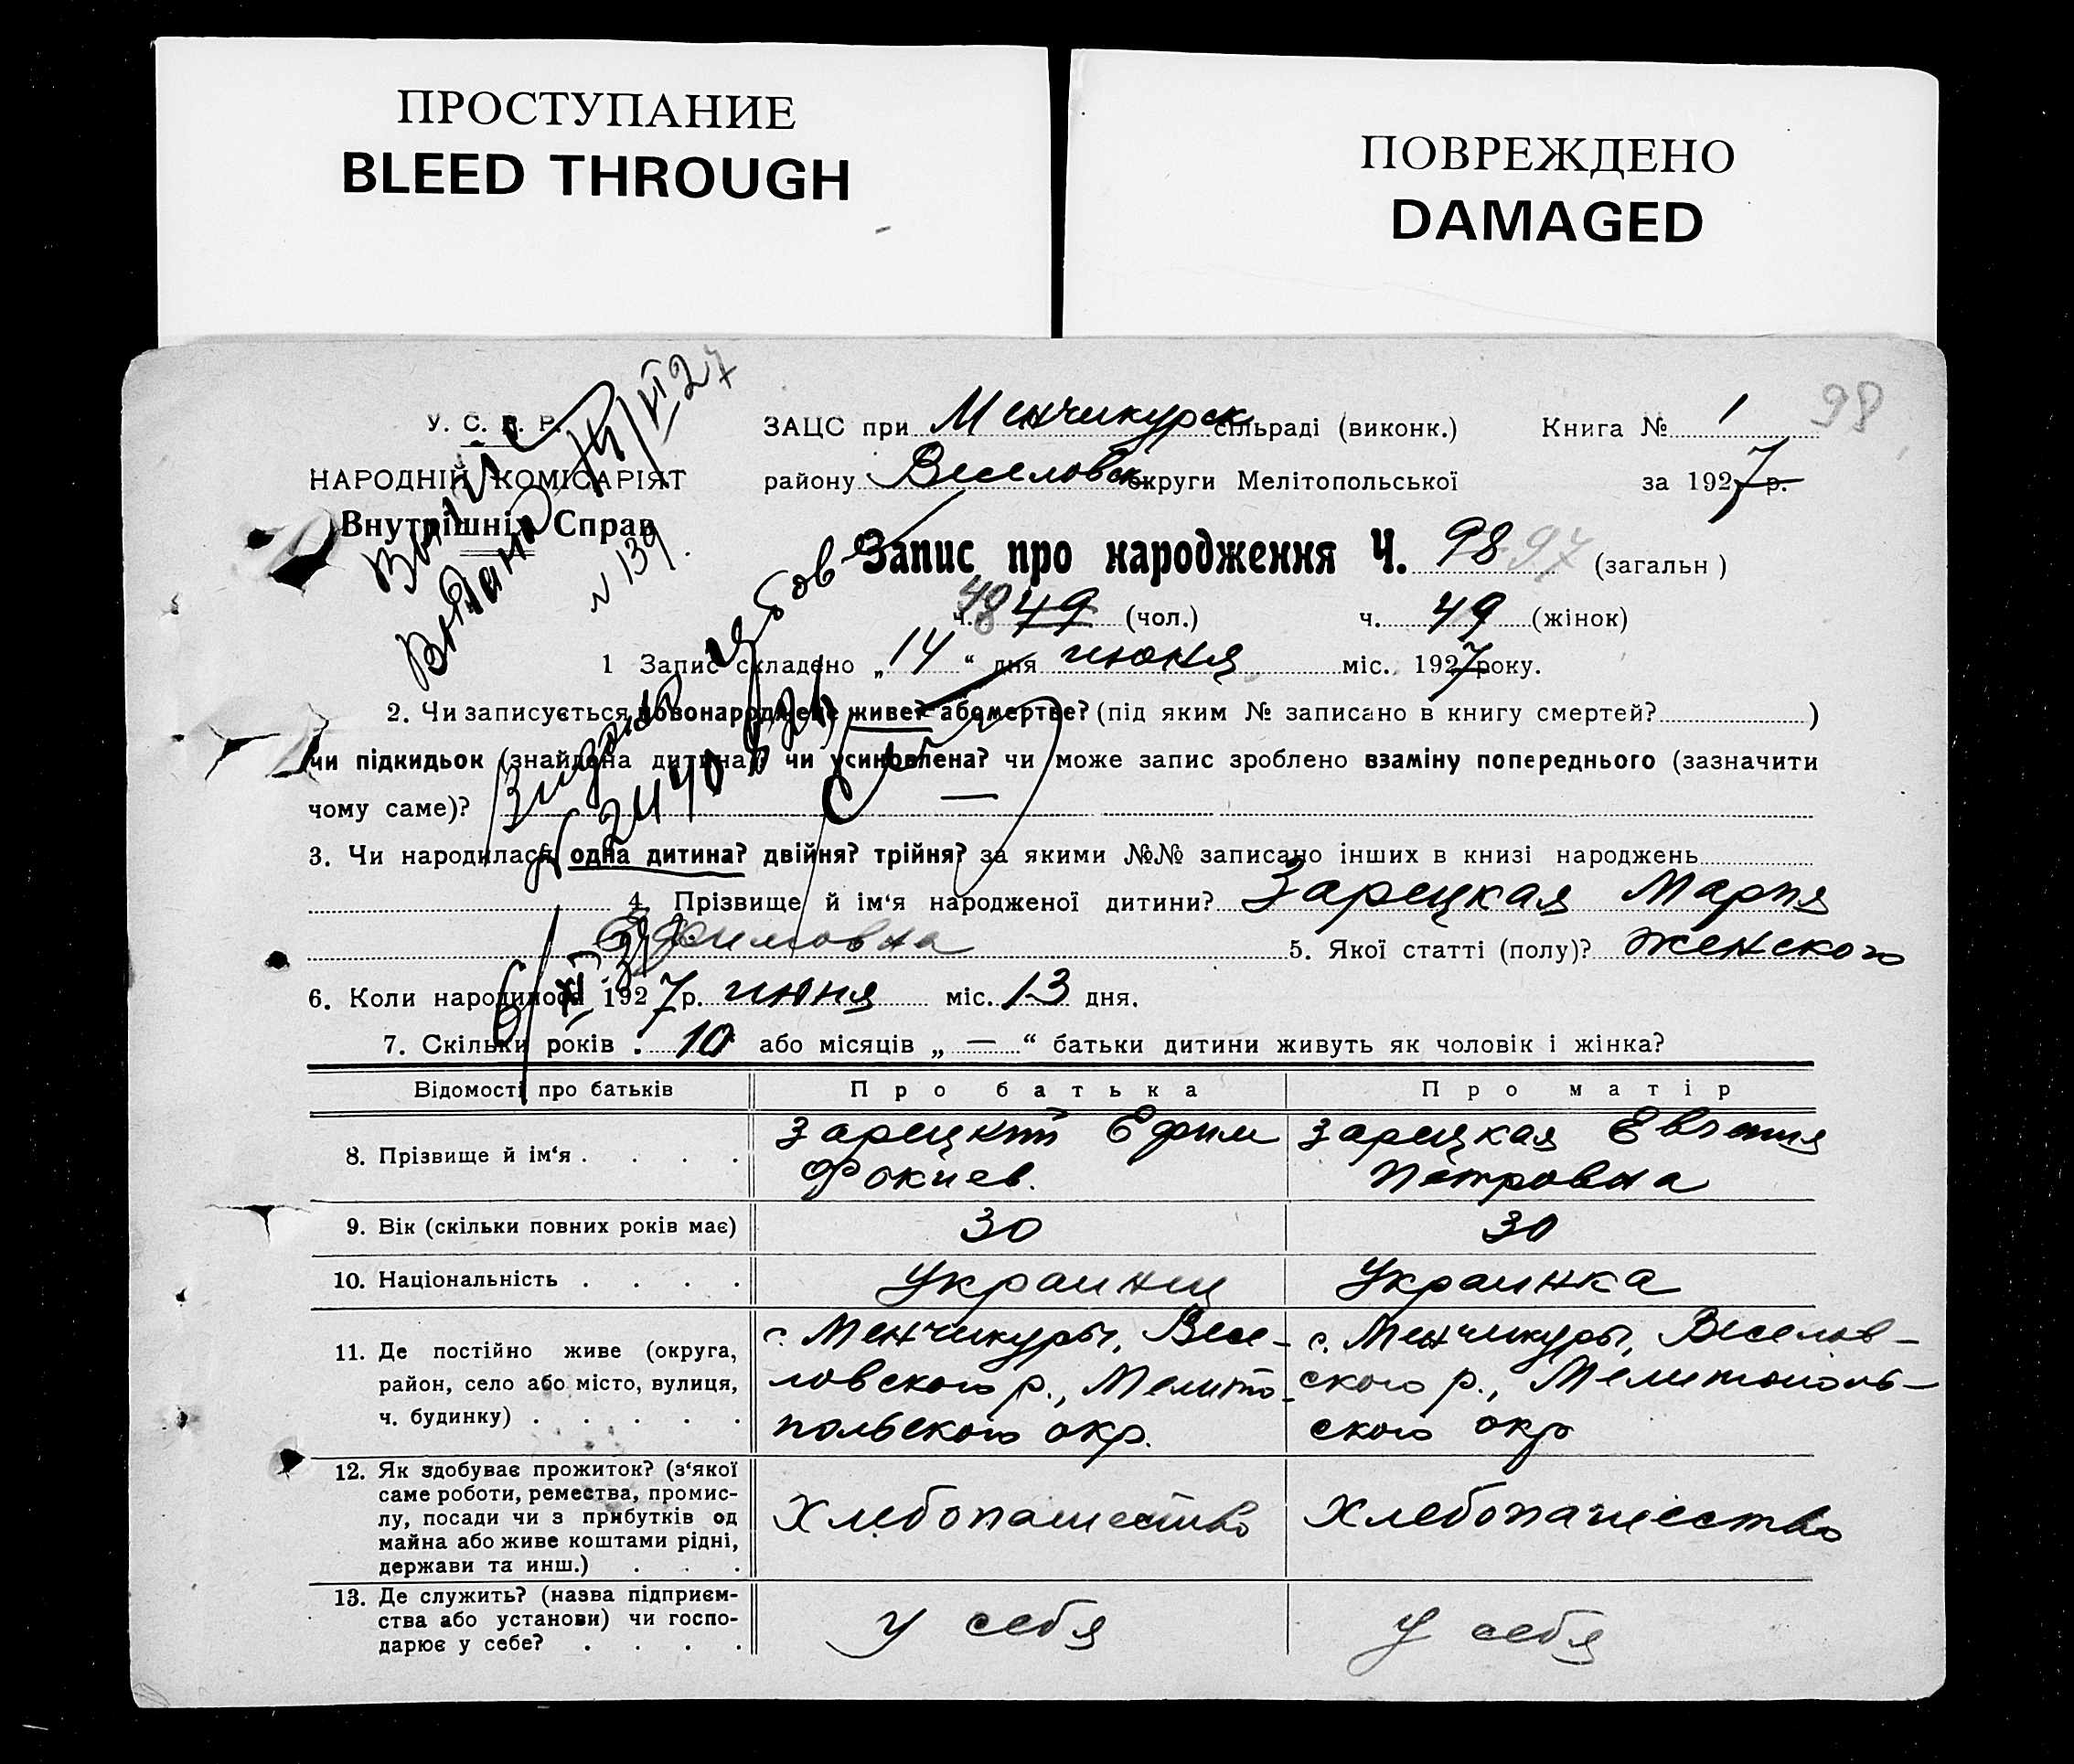 ПРОСТУПАНИЕ
BLEED THROUGH
ПОВРЕЖДЕНО
DAMAGED
98
У. С. Р. Р.
НАРОДНІЙ КОМІСАРІЯТ
Внутрішніх Справ
Выпись
Выдана 14/VI 27
№ 139.
ЗАЦС при Менчикурск сільраді (виконк.) Книга № 1
району Веселовск округи Мелітопольської за 1927 р.
Запис про народження Ч. 98 97 (загальн)
ч. 48 49 (чол.) ч. 49 (жінок)
1 Запис складено „14“ дня июня міс. 1927 року.
2. Чи записується новонароджене живе? або мертве? (під яким № записано в книгу смертей? )
чи підкидьок (знайдена дитина)? чи усиновлена? чи може запис зроблено взаміну попереднього (зазначити
чому саме)? —
3. Чи народилася одна дитина? двійня? трійня? за якими №№ записано інших в книзі народжень
4. Прізвище й ім‘я народженої дитини? Зарецкая Мария
Ефимовна 5. Якої статті (полу)? Женского
6. Коли народилося 1927 р. июня міс. 13 дня.
7. Скільки років 10 або місяців „ — “ батьки дитини живуть як чоловік і жінка?
Відомості про батьків Про батька Про матір
8. Прізвище й ім‘я . . . . Зарецкий Ефим Зарецкая Евгения
Фокиев. Петровна
9. Вік (скільки повних років має) 30 30
10. Національність . . . . Украинец Украинка
11. Де постійно живе (округа, с. Менчикуры, Весе- с. Менчикуры, Веселов-
район, село або місто, вулиця, ловского р., Мелито- ского р., Мелитополь-
ч. будинку) . . . . . польского окр. ского окр
12. Як здобуває прожиток? (з‘якої
саме роботи, ремества, промис-
лу, посади чи з прибутків од Хлебопашество Хлебопашество
майна або живе коштами рідні,
держави та инш.) . . .
13. Де служить? (назва підприєм-
ства або установи) чи госпо- У себя У себя
дарює у себе? . . . .